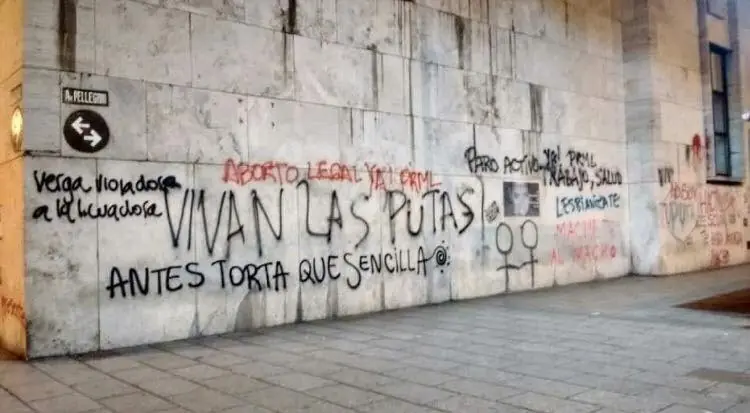 A. PELLEGRINI
verga violadora
a la licuadora
ABORTO LEGAL YA! PRML
VIVAN LAS PUTAS
ANTES TORTA QUE SENCILLA
PARO ACTIVO YA! PRML
TRABAJO, SALUD
LESBIANIZATE
MACHETE
AL MACHO